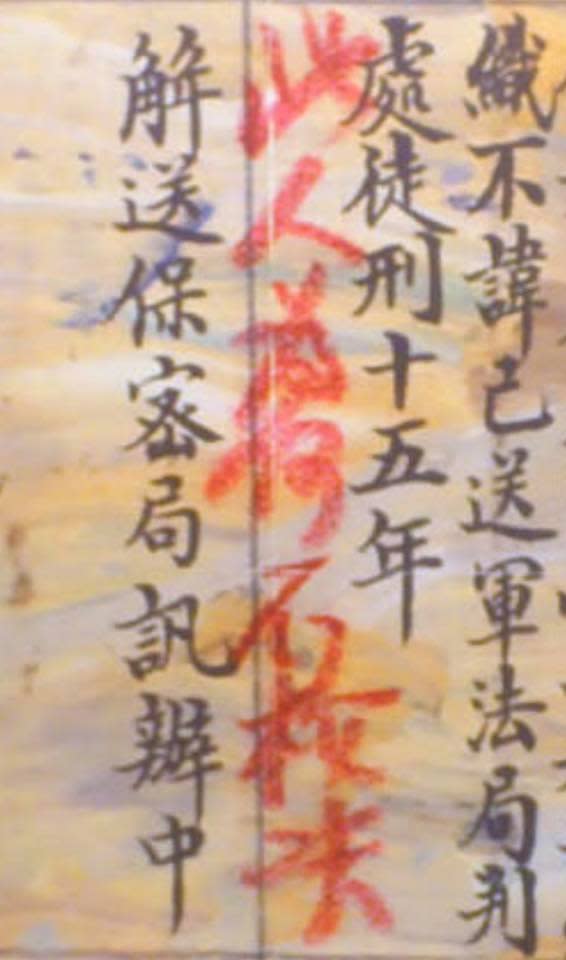 織不諱已送軍法局判
處徒刑十五年
此人為何不槍決
解送保密局訊辦中